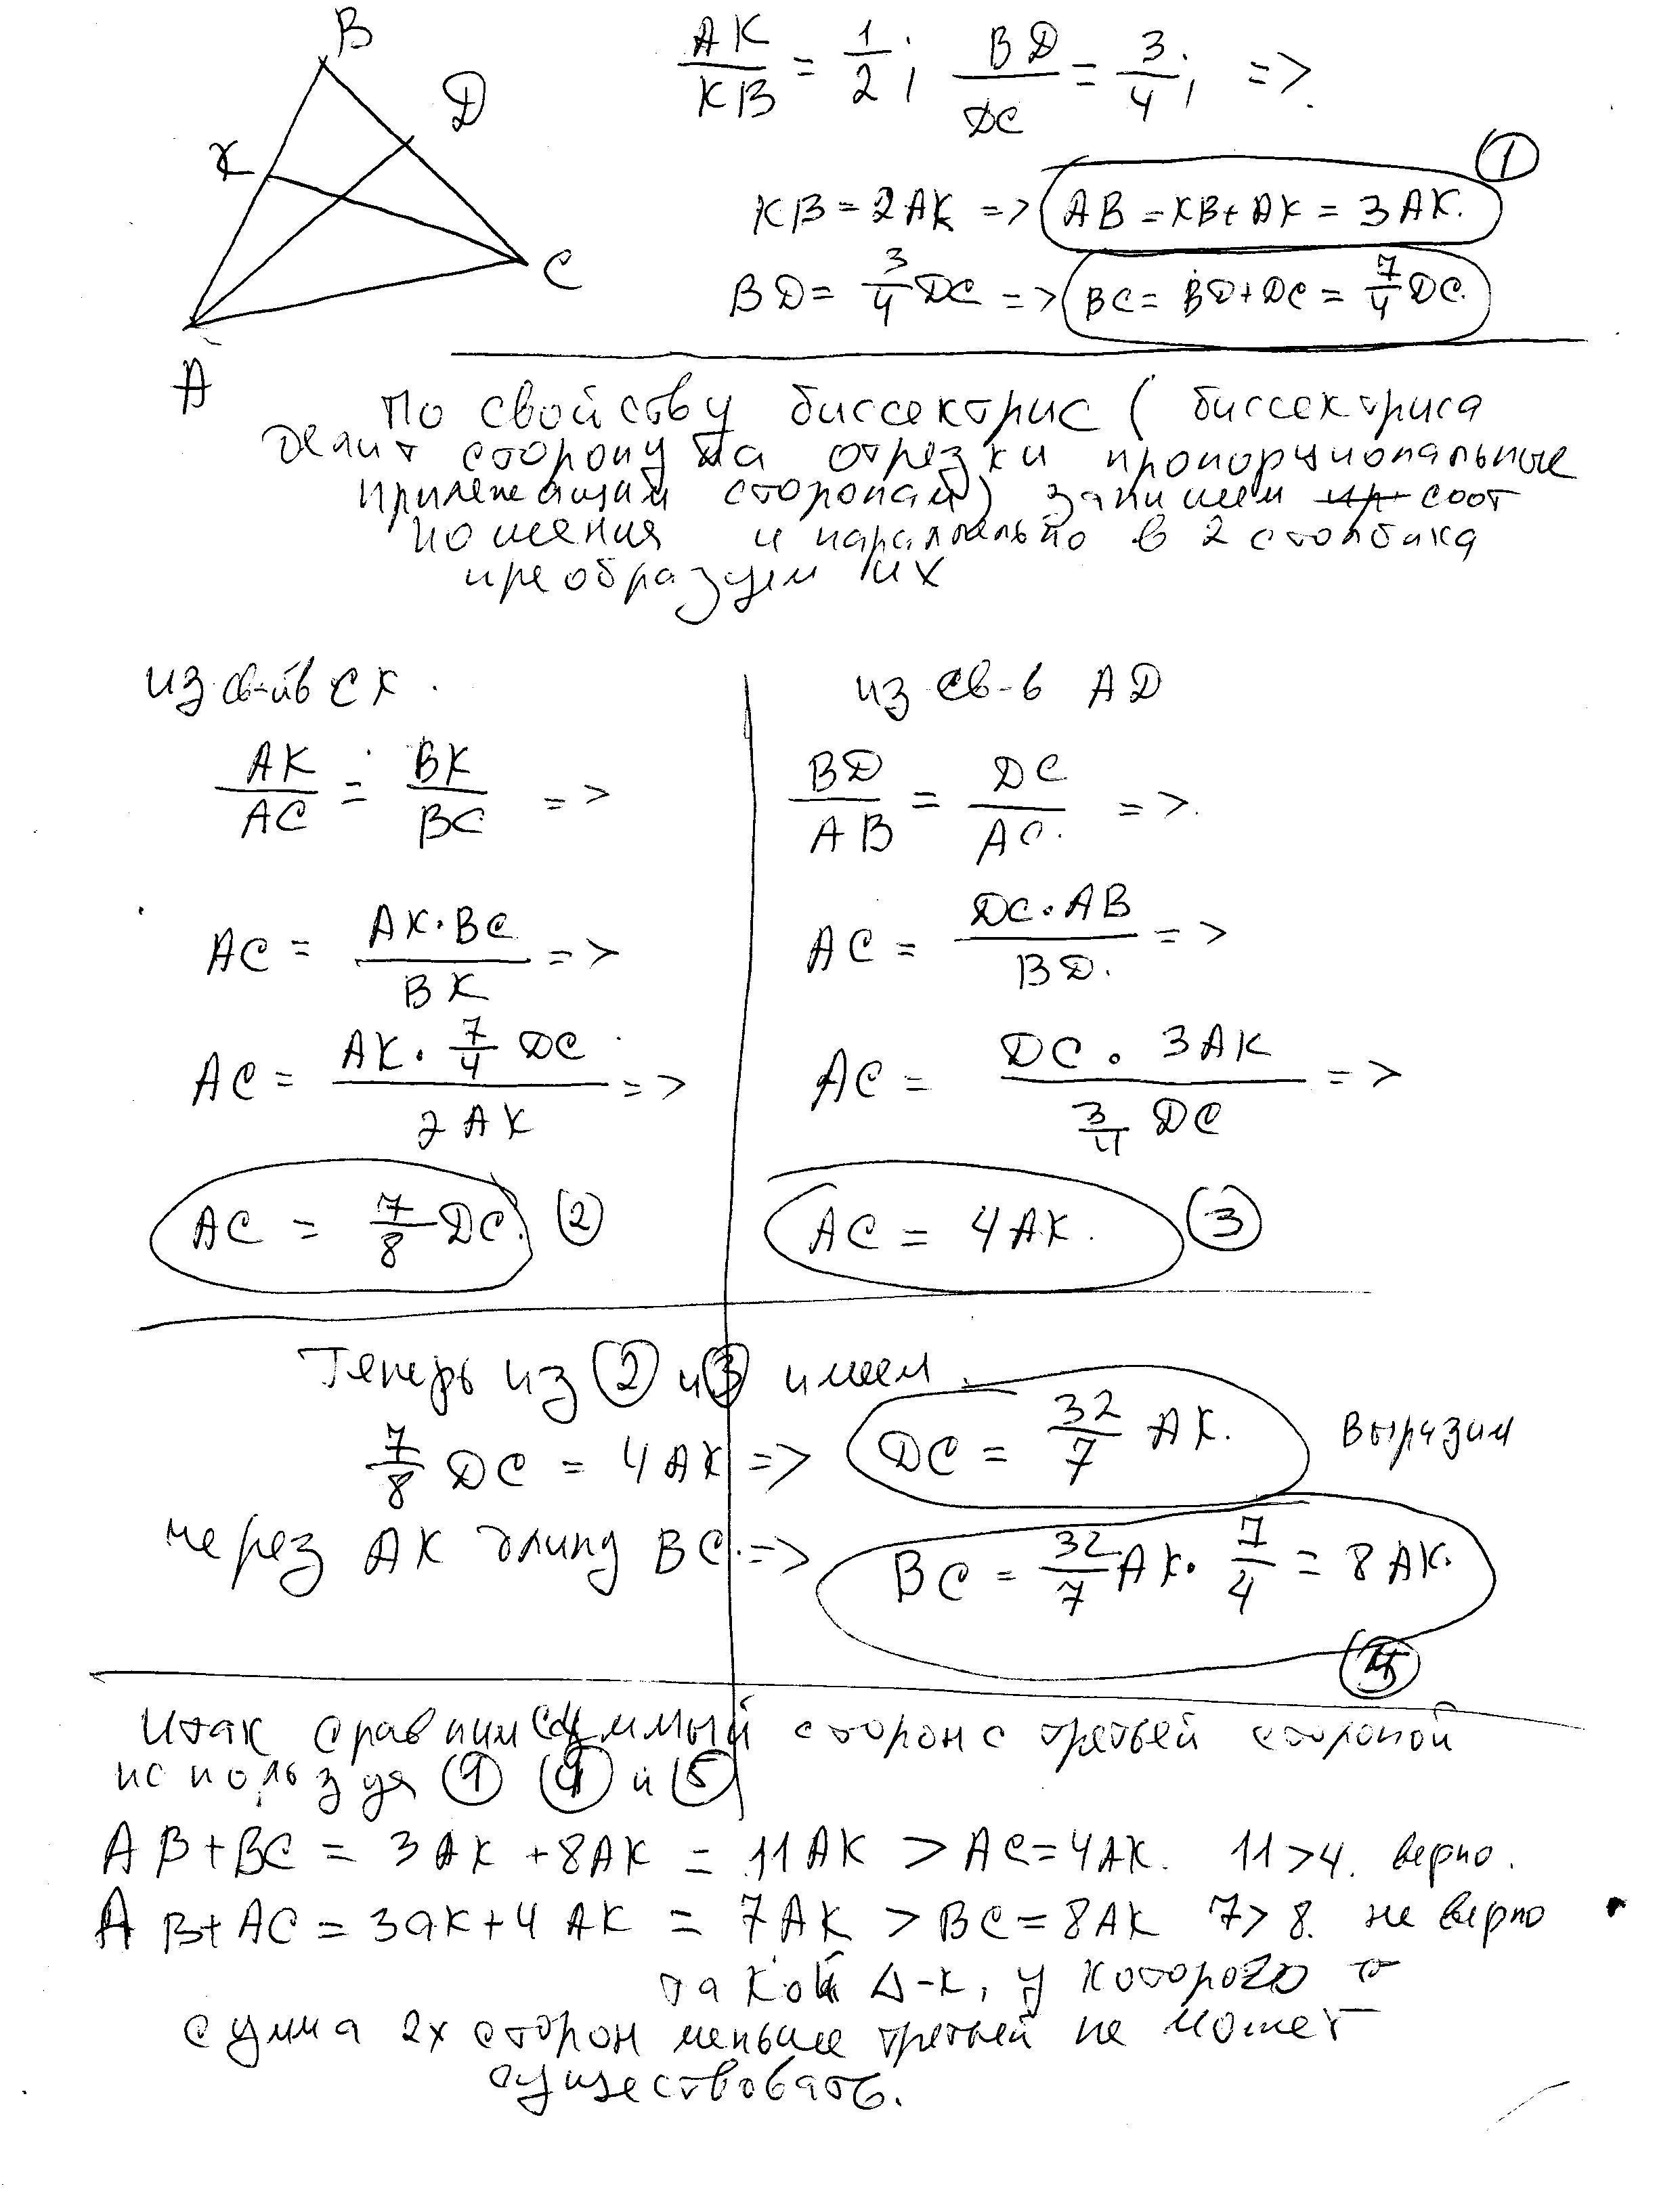 B
D
K
C
A
AK/KB = 1/2; BD/DC = 3/4; =>
①
KB = 2AK => AB = KB + AK = 3AK.
BD = 3/4 DC => BC = BD + DC = 7/4 DC.
По свойству биссектрис (биссектриса
делит сторону на отрезки пропорциональные
прилежащим сторонам) запишем соот
ношения и параллельно в 2 столбика
преобразуем их
из св-йв CK.
AK/AC = BK/BC =>
AC = AK·BC/BK =>
AC = AK · 7/4 DC / 2AK =>
AC = 7/8 DC. ②
из св-в AD
BD/AB = DC/AC. =>
AC = DC·AB/BD. =>
AC = DC · 3AK / 3/4 DC =>
AC = 4AK. ③
Теперь из ② и ③ имеем
7/8 DC = 4AK => DC = 32/7 AK. Выразим
через AK длину BC. => BC = 32/7 AK · 7/4 = 8AK.
Итак сравним суммы сторон с третьей стороной
используя ① ④ и ⑤
AB+BC = 3AK + 8AK = 11AK > AC = 4AK. 11>4. верно.
AB+AC = 3aK + 4AK = 7AK > BC = 8AK 7>8. не верно
такой Δ-к, у которого
сумма 2х сторон меньше третьей не может
существовать.